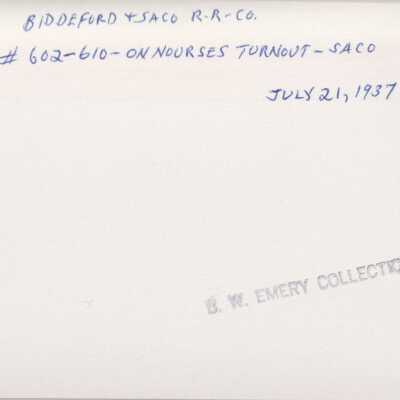 BIDDEFORD & SACO R-R-CO.
# 602-610-ON NOURSES TURNOUT-SACO
JULY 21, 1937
B. W. EMERY COLLECTIO